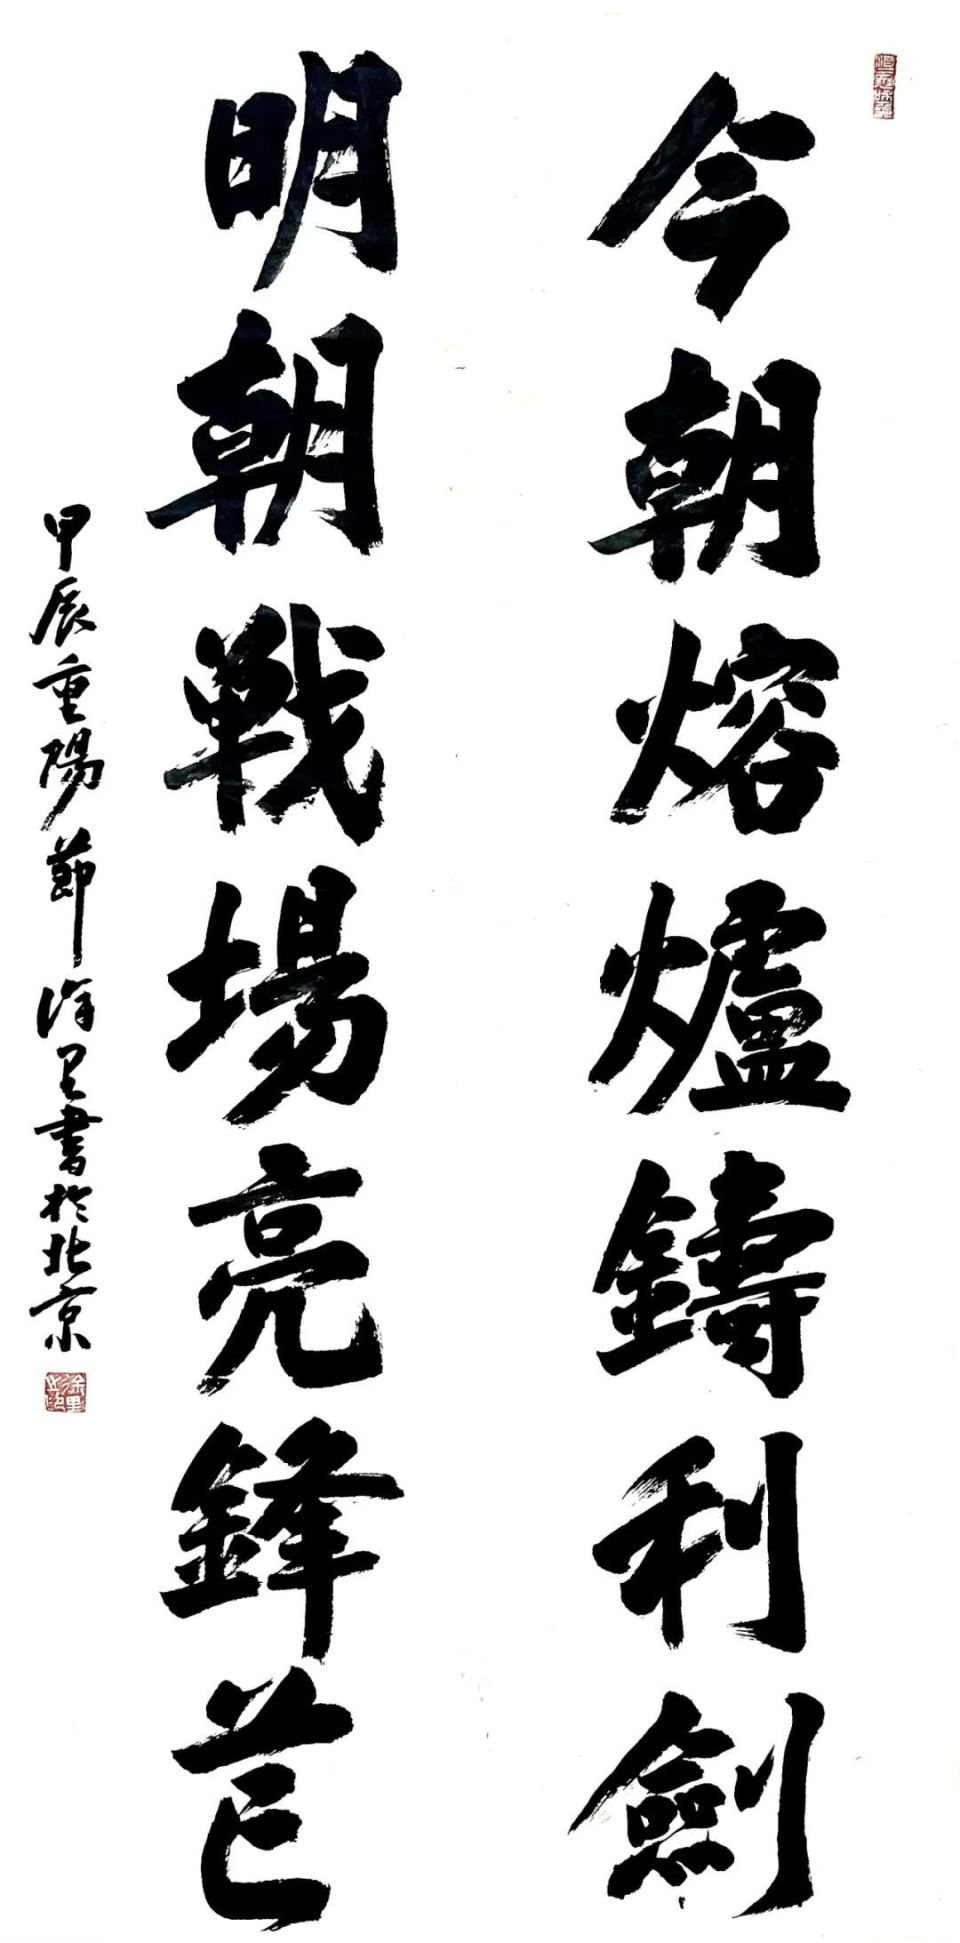 今朝熔爐鑄利劍
明朝戰場亮鋒芒
甲辰重陽節徐里書於北京